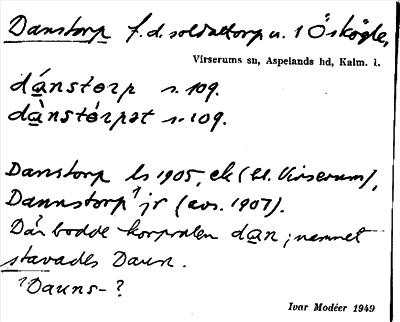 Danstorp f.d. soldattorp u. 1 Öskögle,
Virserums sn, Aspelands hd, Kalm. l.
dánstorp s. 109.
dànstórpət s. 109.
Danstorp ls 1905, ek (bl. Virserum),
Dannstorp¹ jr (avs. 1907).
Där bodde korpralen dan; namnet
stavades Daun.
¹Dauns-?
Ivar Modéer 1949